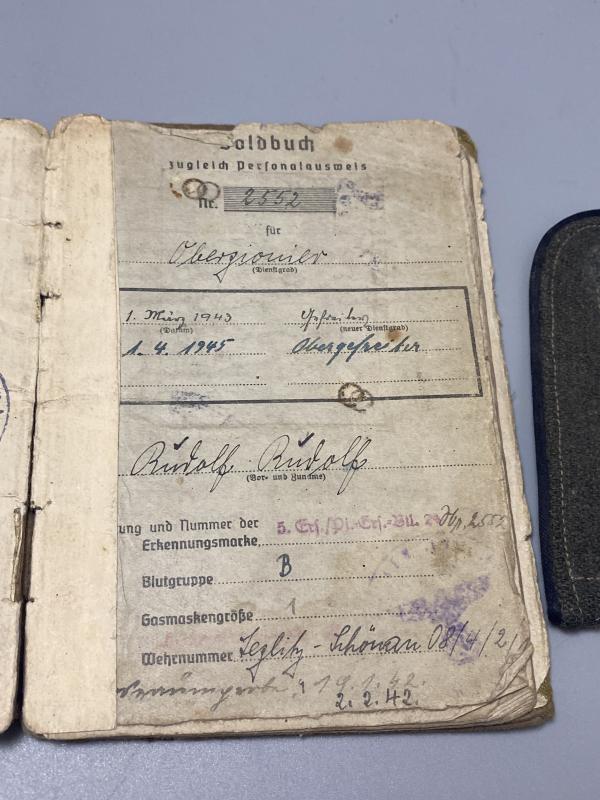 Soldbuch
zugleich Personalausweis
Nr. 2552
für
Oberpionier
(Dienstgrad)
1. März 1943 Gefreiter
(Datum) (neuer Dienstgrad)
1. 4. 1945 Obergefreiter
Rudolf Rudolf
(Vor- und Zuname)
ung und Nummer der
Erkennungsmarke 5. Ers./Pi.-Ers.-Btl. 2552
Blutgruppe B
Gasmaskengröße 1
Wehrnummer Teplitz-Schönau 08/4/2/
19.1.42.
2.2.42.